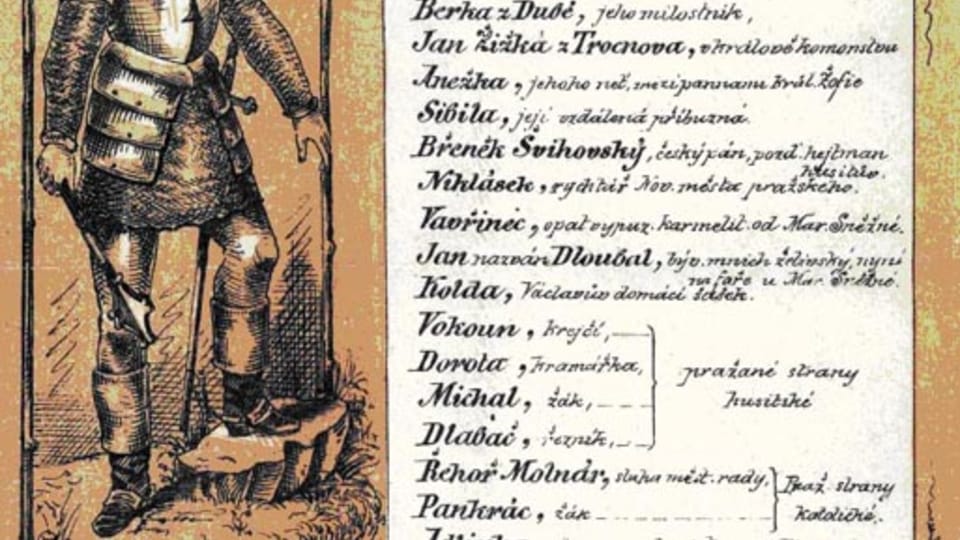 Berka z Dubé, jeho milostník,
Jan Žižka z Trocnova, v králově komonstvu
Anežka, jehoho neť, mezi pannami král. Žofie
Sibila, její vzdálená příbuzná.
Břeněk Švihovský, český pán, pozd. hejtman
husitův.
Niklásek, rychtář Nov. města pražského.
Vavřinec, opat vypuz. karmelit. od Mar. Sněžné.
Jan nazván Dloubal, býv. mnich želivský, nyní
na faře u Mar. Sněžné.
Kolda, Václavův domácí šašek.
Vokoun, krejčí,
Dorota, kramářka,
Michal, žák,
Dlabač, řezník,
pražané strany
husitské
Řehoř Molnár, sluha měst. rady,
Pankrác, žák
Praž. strany
katolické.